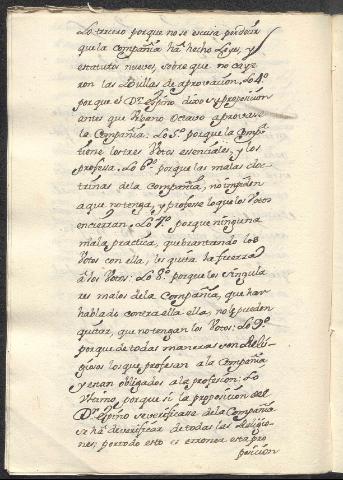 Lo tercio porque no se escusa por decir
que la Compañia ha hecho Leyes, y
estatutos nuevos, sobre que no caye
ron las Bullas de aprovacion. Lo 4º
porque el Dr. Espino dixo su proposicion
antes que Urbano Octavo aprovase
la Compañia: Lo 5º porque la Compª
tiene los tres Votos essenciales, y los
professa. Lo 6º porque las malas doc
trinas de la Compañia, no impiden
a que no tenga, y professe lo que los Votos
encierran. Lo 7º porque ninguna
mala practica, quebrantando los
Votos con ella, les quita la fuerza
á los Votos: Lo 8º porque los singula
res malos de la Compañia, que han
hablado contra ella, no le pueden
quitar, que no tengan los Votos: Lo 9º
porque de todas maneras son Reli-
giosos los que professan a la Compañia
y estan obligados a la profession: Lo
Vltimo, porque si la proposicion del
Dr. Espino se verificase de la Compañia
se há de verificar de todas las Religio-
nes; por todo esto es erronea esta pro
posicion